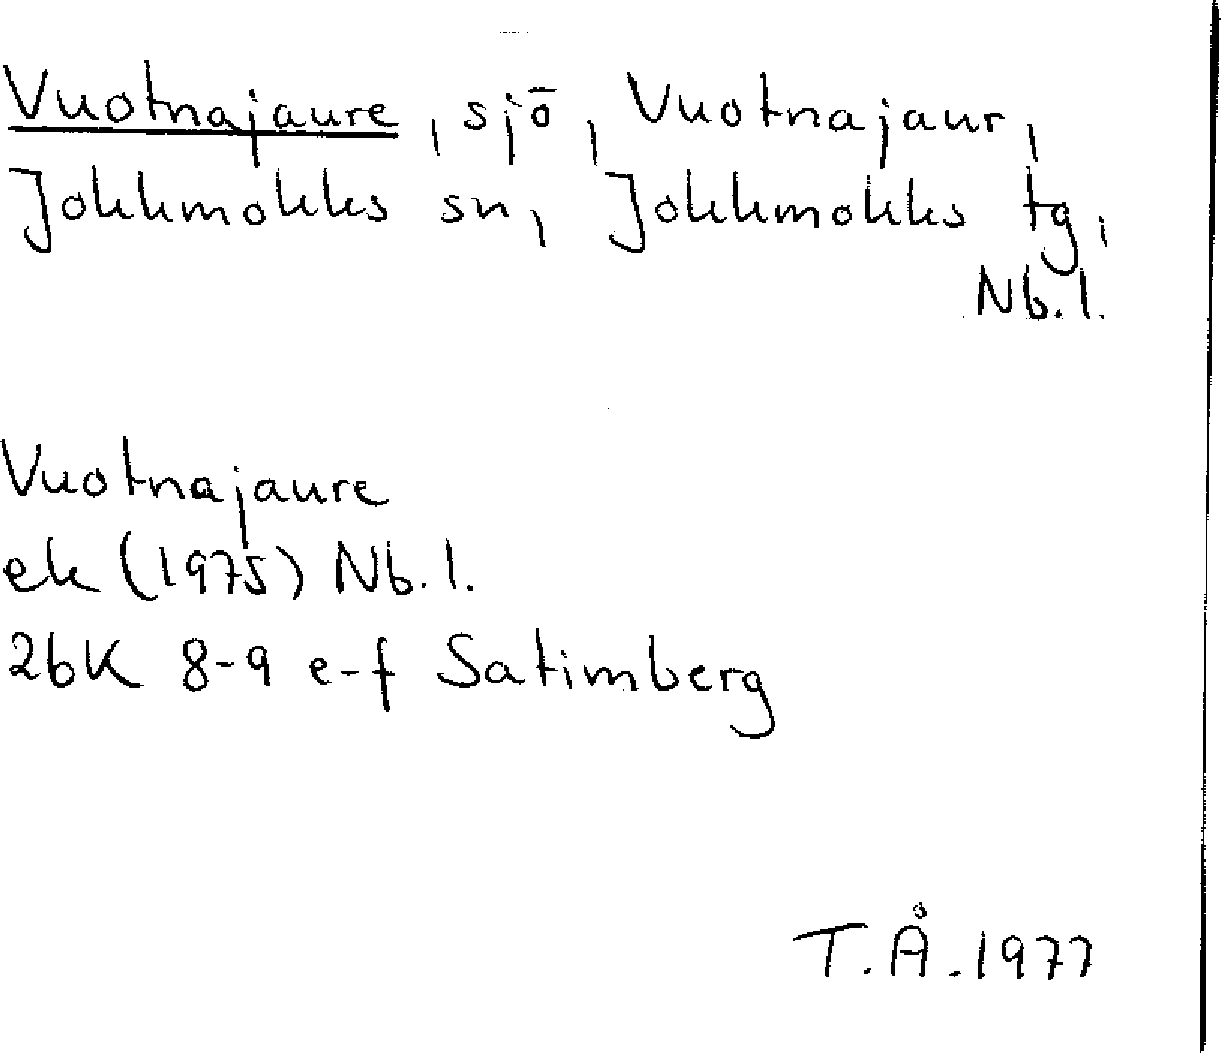 Vuotnajaure, sjö, Vuotnajaur,
Jokkmokks sn, Jokkmokks tg,
Nb.l.
Vuotnajaure
ek (1975) Nb.l.
26K 8-9 e-f Satimberg
T.Å.1977